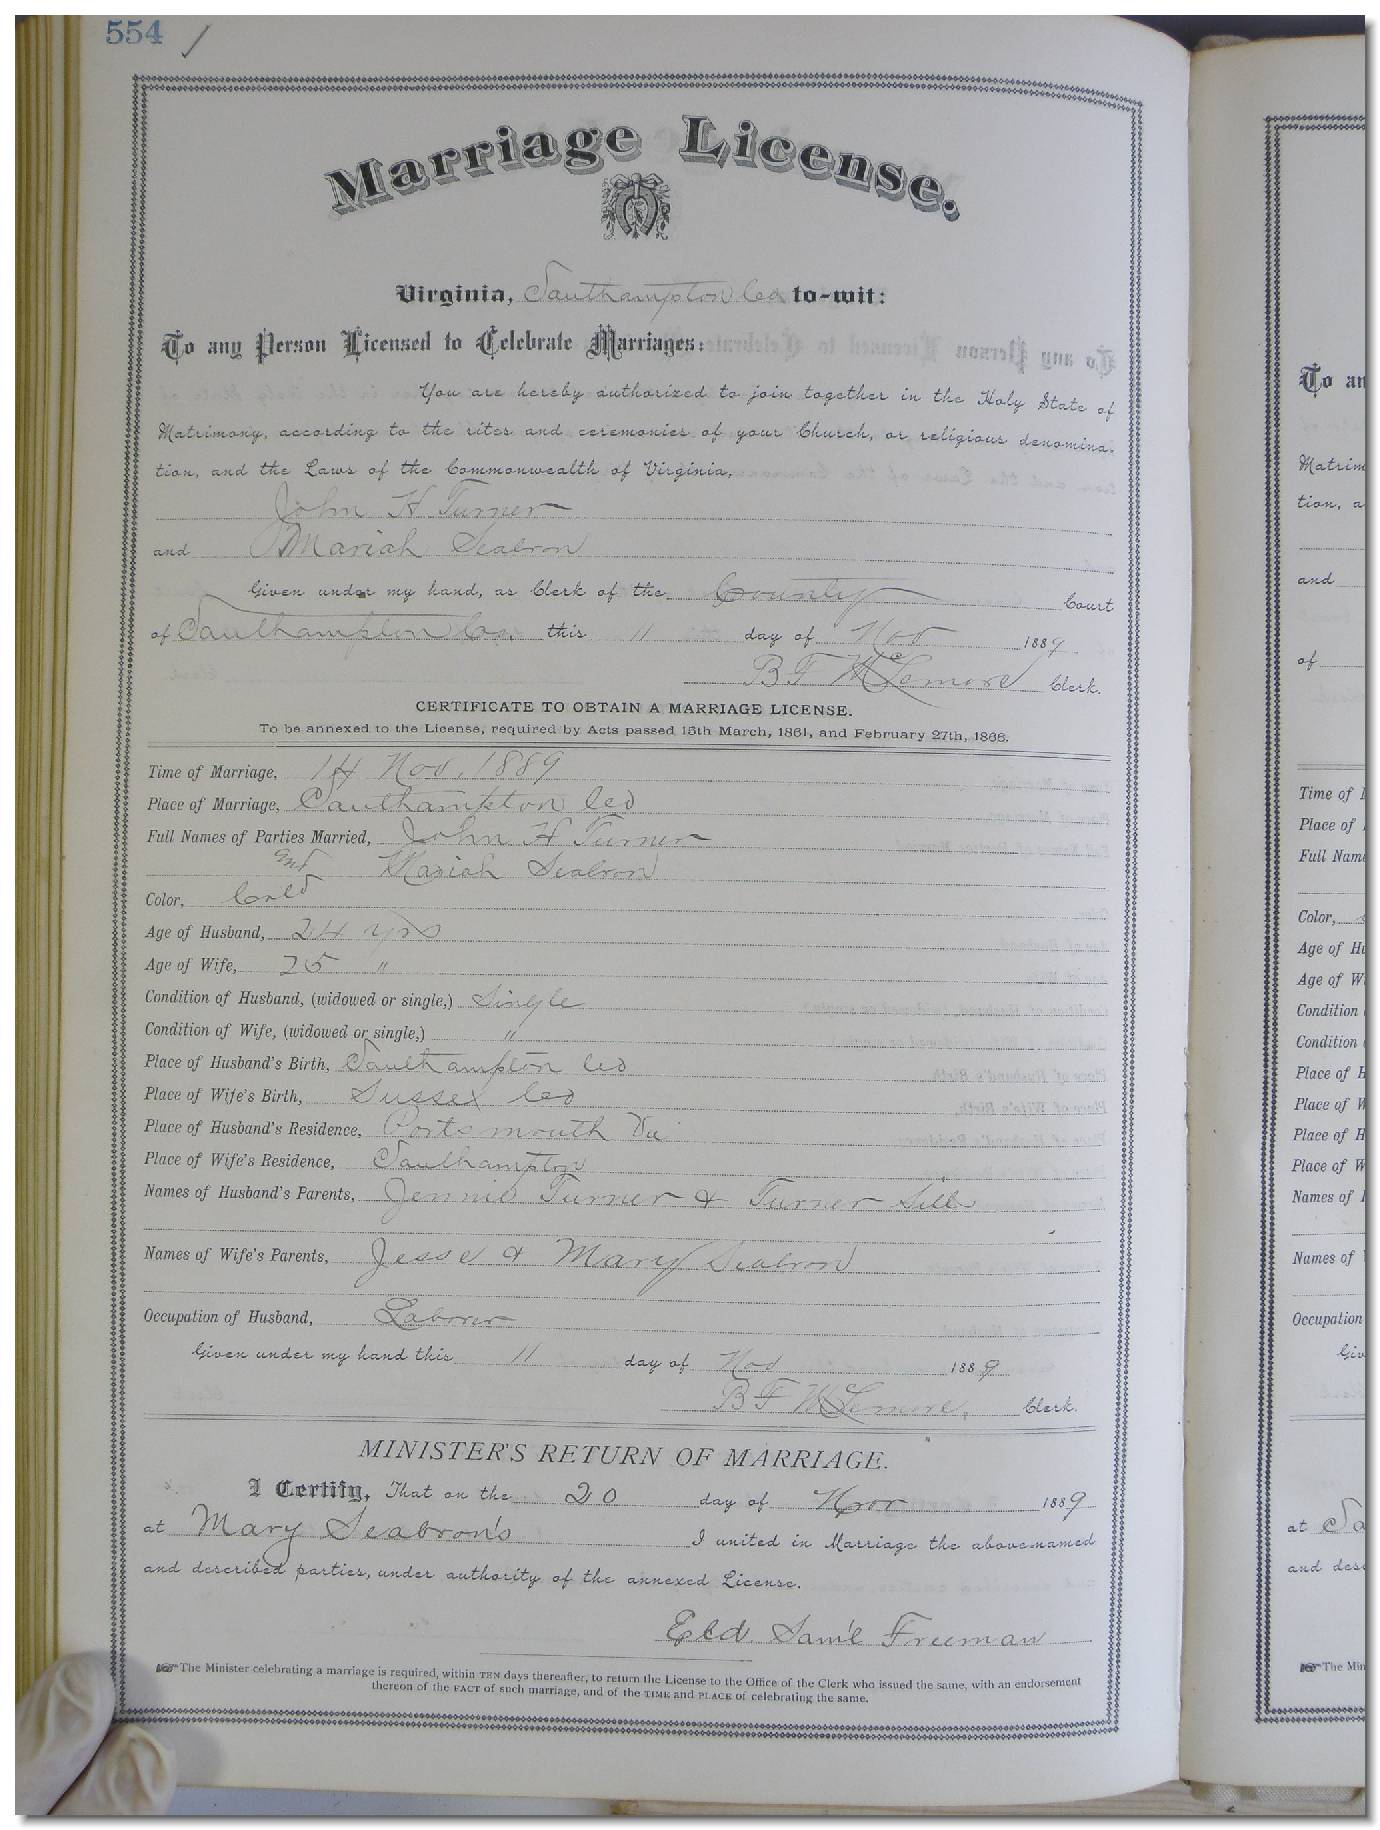 554
Marriage License.
Virginia, Southampton Co to-wit:
To any Person Licensed to Celebrate Marriages:
You are hereby authorized to join together in the Holy State of
Matrimony, according to the rites and ceremonies of your Church, or religious denomina-
tion, and the Laws of the Commonwealth of Virginia,
John H Turner
and Mariah Seabron
Given under my hand, as Clerk of the County Court
of Southampton Co. this 11 day of Nov 1889
B F McLemore Clerk.
CERTIFICATE TO OBTAIN A MARRIAGE LICENSE.
To be annexed to the License, required by Acts passed 15th March, 1861, and February 27th, 1866.
Time of Marriage, 14 Nov. 1889
Place of Marriage, Southampton Co
Full Names of Parties Married, John H Turner
and Mariah Seabron
Color, Cold
Age of Husband, 24 yrs
Age of Wife, 25 "
Condition of Husband, (widowed or single,) Single
Condition of Wife, (widowed or single,) "
Place of Husband's Birth, Southampton Co
Place of Wife's Birth, Sussex Co
Place of Husband's Residence, Portsmouth Va
Place of Wife's Residence, Southampton
Names of Husband's Parents, Jennie Turner & Turner
Names of Wife's Parents, Jesse & Mary Seabron
Occupation of Husband, Laborer
Given under my hand this 11 day of Nov 1889
B F McLemore, Clerk.
MINISTER'S RETURN OF MARRIAGE.
I Certify, That on the 20 day of Nov 1889
at Mary Seabron's I united in Marriage the above-named
and described parties, under authority of the annexed License.
Eld. Sam'l Freeman
The Minister celebrating a marriage is required, within TEN days thereafter, to return the License to the Office of the Clerk who issued the same, with an endorsement
thereon of the FACT of such marriage, and of the TIME and PLACE of celebrating the same.
To an
Matrim
tion, a
and
of
Time of
Place of
Full Nam
Color,
Age of Hu
Age of W
Condition
Condition
Place of H
Place of W
Place of H
Place of W
Names of
Names of
Occupation
Giv
at So
and desc
The Min